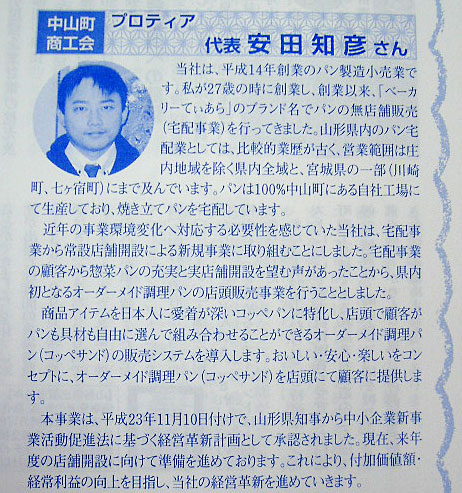 中山町
商工会
プロティア
代表 安田知彦さん
当社は、平成14年創業のパン製造小売業で
す。私が27歳の時に創業し、創業以来、「ベーカ
リーてぃあら」のブランド名でパンの無店舗販売
(宅配事業)を行ってきました。山形県内のパン宅
配業としては、比較的業歴が古く、営業範囲は庄
内地域を除く県内全域と、宮城県の一部(川崎
町、七ヶ宿町)にまで及んでいます。パンは100%中山町にある自社工場に
て生産しており、焼き立てパンを宅配しています。
近年の事業環境変化へ対応する必要性を感じていた当社は、宅配事
業から常設店舗開設による新規事業に取り組むことにしました。宅配事業
の顧客から惣菜パンの充実と実店舗開設を望む声があったことから、県内
初となるオーダーメイド調理パンの店頭販売事業を行うこととしました。
商品アイテムを日本人に愛着が深いコッペパンに特化し、店頭で顧客が
パンも具材も自由に選んで組み合わせることができるオーダーメイド調理パ
ン(コッペサンド)の販売システムを導入します。おいしい・安心・楽しいをコン
セプトに、オーダーメイド調理パン(コッペサンド)を店頭にて顧客に提供しま
す。
本事業は、平成23年11月10日付けで、山形県知事から中小企業新事
業活動促進法に基づく経営革新計画として承認されました。現在、来年
度の店舗開設に向けて準備を進めております。これにより、付加価値額・
経常利益の向上を目指し、当社の経営革新を進めていきます。